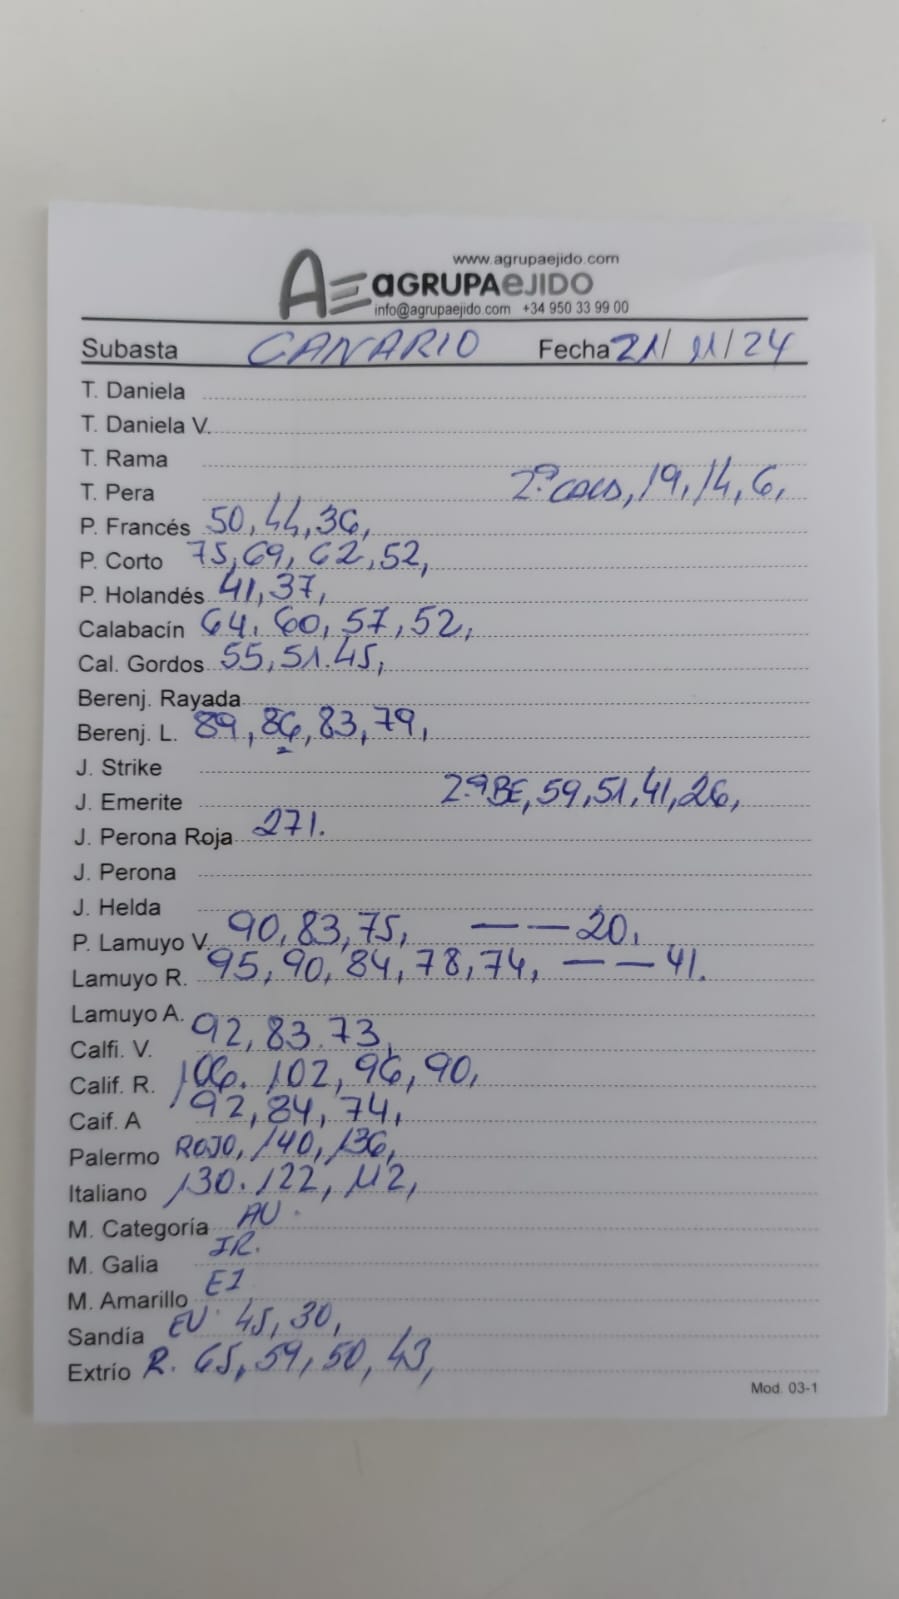 www.agrupaejido.com
AE aGRUPAeJIDO
info@agrupaejido.com +34 950 33 99 00
Subasta CANARIO Fecha 21/11/24
T. Daniela
T. Daniela V.
T. Rama
T. Pera 2ª CALS, 19, 14, 6,
P. Francés 50, 44, 36,
P. Corto 75, 69, 62, 52,
P. Holandés 41, 37,
Calabacín 64, 60, 57, 52,
Cal. Gordos 55, 51. 45,
Berenj. Rayada
Berenj. L. 89, 86, 83, 79,
J. Strike
J. Emerite 2ª BE, 59, 51, 41, 26,
J. Perona Roja 271.
J. Perona
J. Helda
P. Lamuyo V. 90, 83, 75, — — 20,
Lamuyo R. 95, 90, 84, 78, 74, — — 41.
Lamuyo A.
Calfi. V. 92, 83. 73,
Calif. R. 106. 102, 96, 90,
Caif. A 92, 84, 74,
Palermo ROJO, 140, 136,
Italiano 130. 122, 112,
M. Categoría AU.
M. Galia IR.
M. Amarillo EI
Sandía EV. 45, 30,
Extrío R. 65, 59, 50, 43,
Mod. 03-1